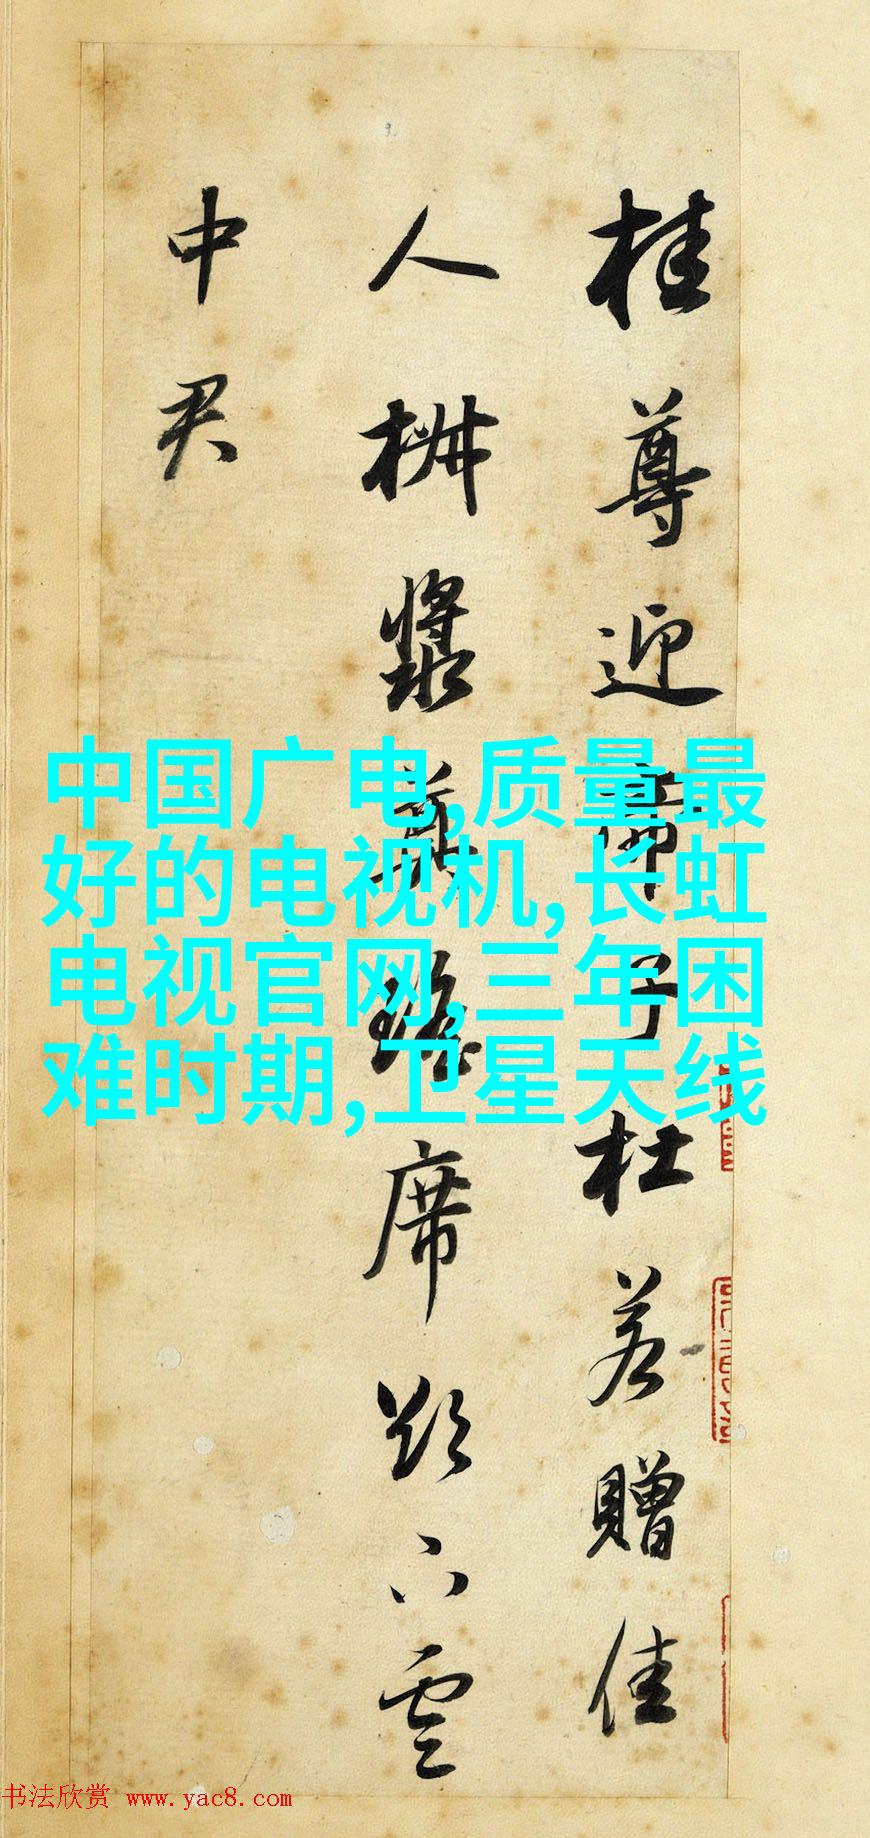 桂尊迎帝子杜若贈佳
人椒漿奠瑤席欲下雲
中君
中国广电,质量最
好的电视机,长虹
电视官网,三年困
难时期,卫星天线
书法欣赏 www.yac8.com